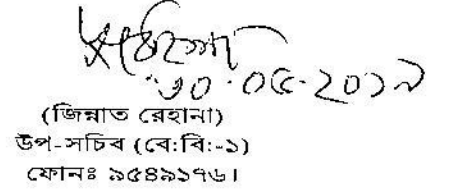 ৩০.০৫.২০১৯
(জিন্নাত রেহানা)
উপ-সচিব (বে:বি:-১)
ফোনঃ ৯৫৪৯১৭৬।